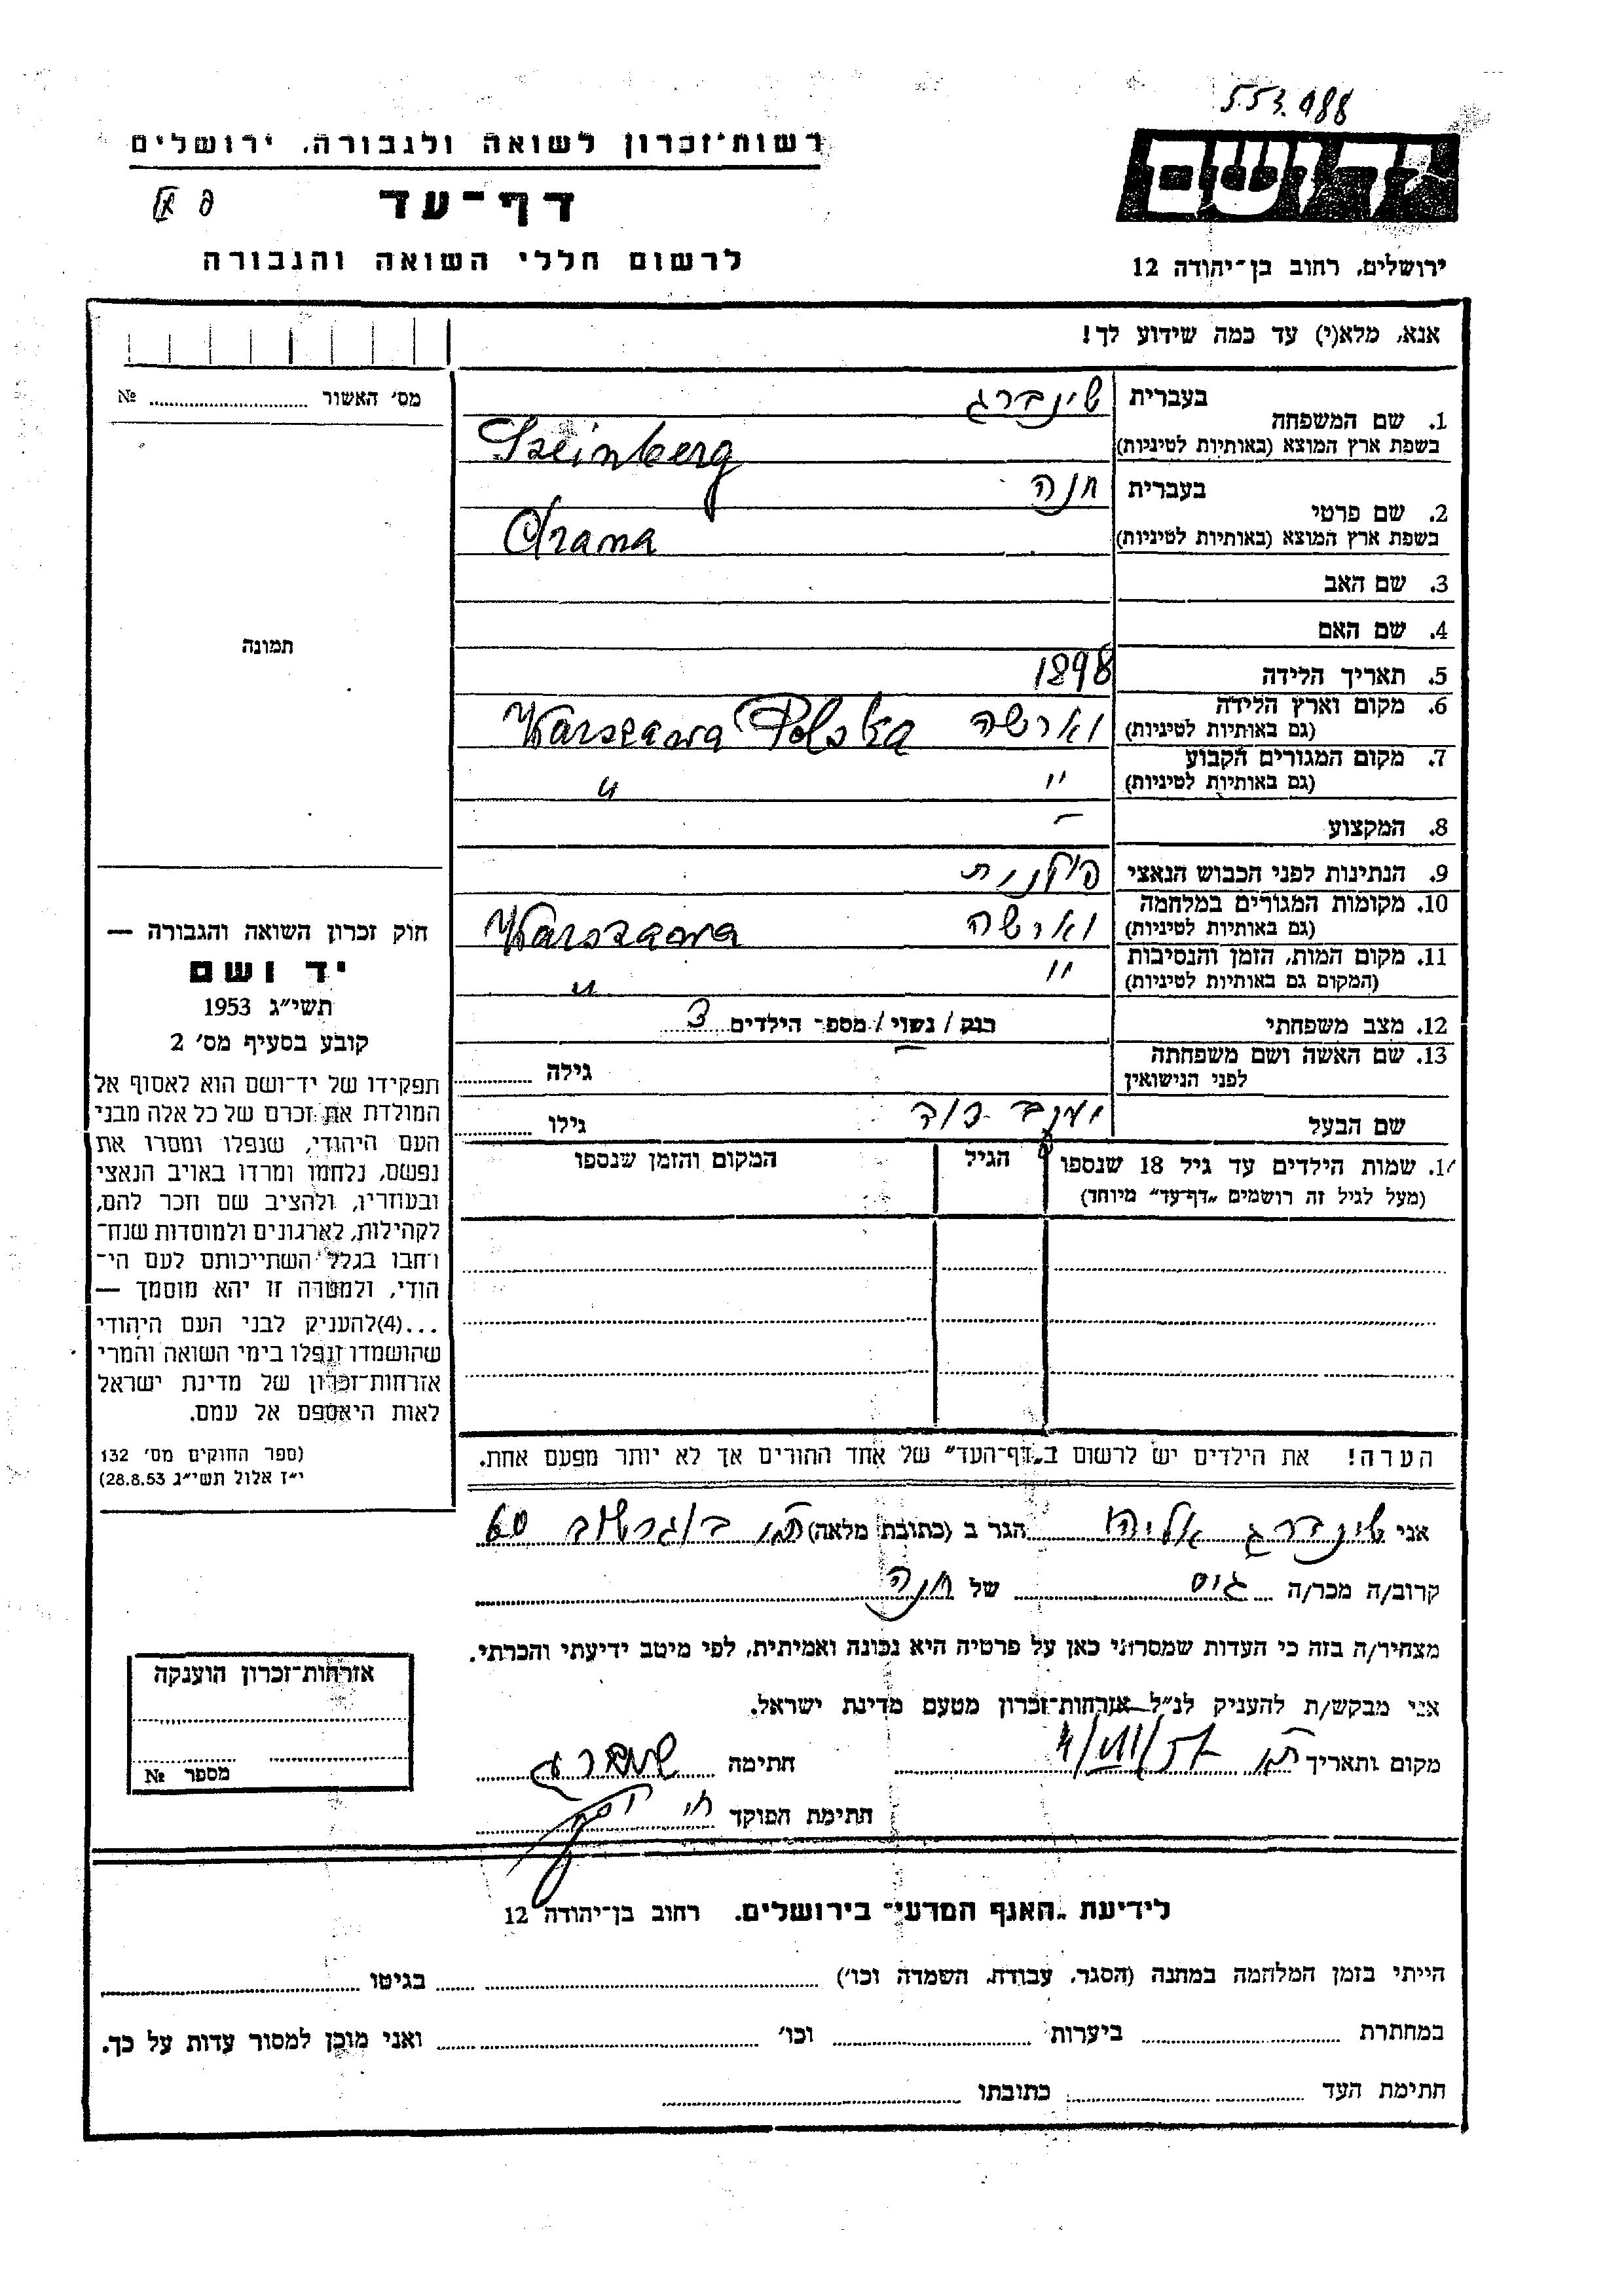 553.988
יד ושם
רשות־זכרון לשואה ולגבורה, ירושלים
דף־עד
לרשום חללי השואה והגבורה
ירושלים, רחוב בן־יהודה 12
אנא, מלא(י) עד כמה שידוע לך!
מס׳ האשור № 
תמונה
1. שם המשפחה
בעברית שינברג
בשפת ארץ המוצא (באותיות לטיניות) Szeinberg
2. שם פרטי
בעברית חנה
בשפת ארץ המוצא (באותיות לטיניות) Chana
3. שם האב
4. שם האם
5. תאריך הלידה 1898
6. מקום וארץ הלידה
(גם באותיות לטיניות) וארשה Warszawa Polska
7. מקום המגורים הקבוע
(גם באותיות לטיניות) " "
8. המקצוע –
9. הנתינות לפני הכבוש הנאצי פולנית
10. מקומות המגורים במלחמה
(גם באותיות לטיניות) וארשה Warszawa
11. מקום המות, הזמן והנסיבות
(המקום גם באותיות לטיניות) " "
12. מצב משפחתי רוק / נשוי / מספר הילדים 3
13. שם האשה ושם משפחתה
לפני הנישואין – גילה
שם הבעל דוד גילו
14. שמות הילדים עד גיל 18 שנספו הגיל המקום והזמן שנספו
(מעל לגיל זה רושמים „דף־עד״ מיוחד)
הערה! את הילדים יש לרשום ב„דף־העד״ של אחד ההורים אך לא יותר מפעם אחת.
חוק זכרון השואה והגבורה —
יד ושם
תשי״ג 1953
קובע בסעיף מס׳ 2
תפקידו של יד־ושם הוא לאסוף אל
המולדת את זכרם של כל אלה מבני
העם היהודי, שנפלו ומסרו את
נפשם, נלחמו ומרדו באויב הנאצי
ובעוזריו, ולהציב שם וזכר להם,
לקהילות, לארגונים ולמוסדות שנח־
רבו בגלל השתייכותם לעם הי־
הודי, ולמטרה זו יהא מוסמך —
...(4)להעניק לבני העם היהודי
שהושמדו ונפלו בימי השואה והמרי
אזרחות־זכרון של מדינת ישראל
לאות היאספם אל עמם.
(ספר החוקים מס׳ 132
י״ז אלול תשי״ג 28.8.53)
אני שינברג אליהו הגר ב (כתובת מלאה) ת״א 60
קרוב/ה מכר/ה גיס של חנה
מצהיר/ה בזה כי העדות שמסרתי כאן על פרטיה היא נכונה ואמיתית, לפי מיטב ידיעתי והכרתי.
אני מבקש/ת להעניק לנ״ל אזרחות־זכרון מטעם מדינת ישראל.
מקום ותאריך ת״א חתימה שינברג
חתימת הפוקד
אזרחות־זכרון הוענקה
מספר №
לידיעת „האגף המדעי״ בירושלים, רחוב בן־יהודה 12
הייתי בזמן המלחמה במחנה (הסגר, עבודה, השמדה וכו׳) בגיטו
במחתרת ביערות וכו׳ ואני מוכן למסור עדות על כך.
חתימת העד כתובתו